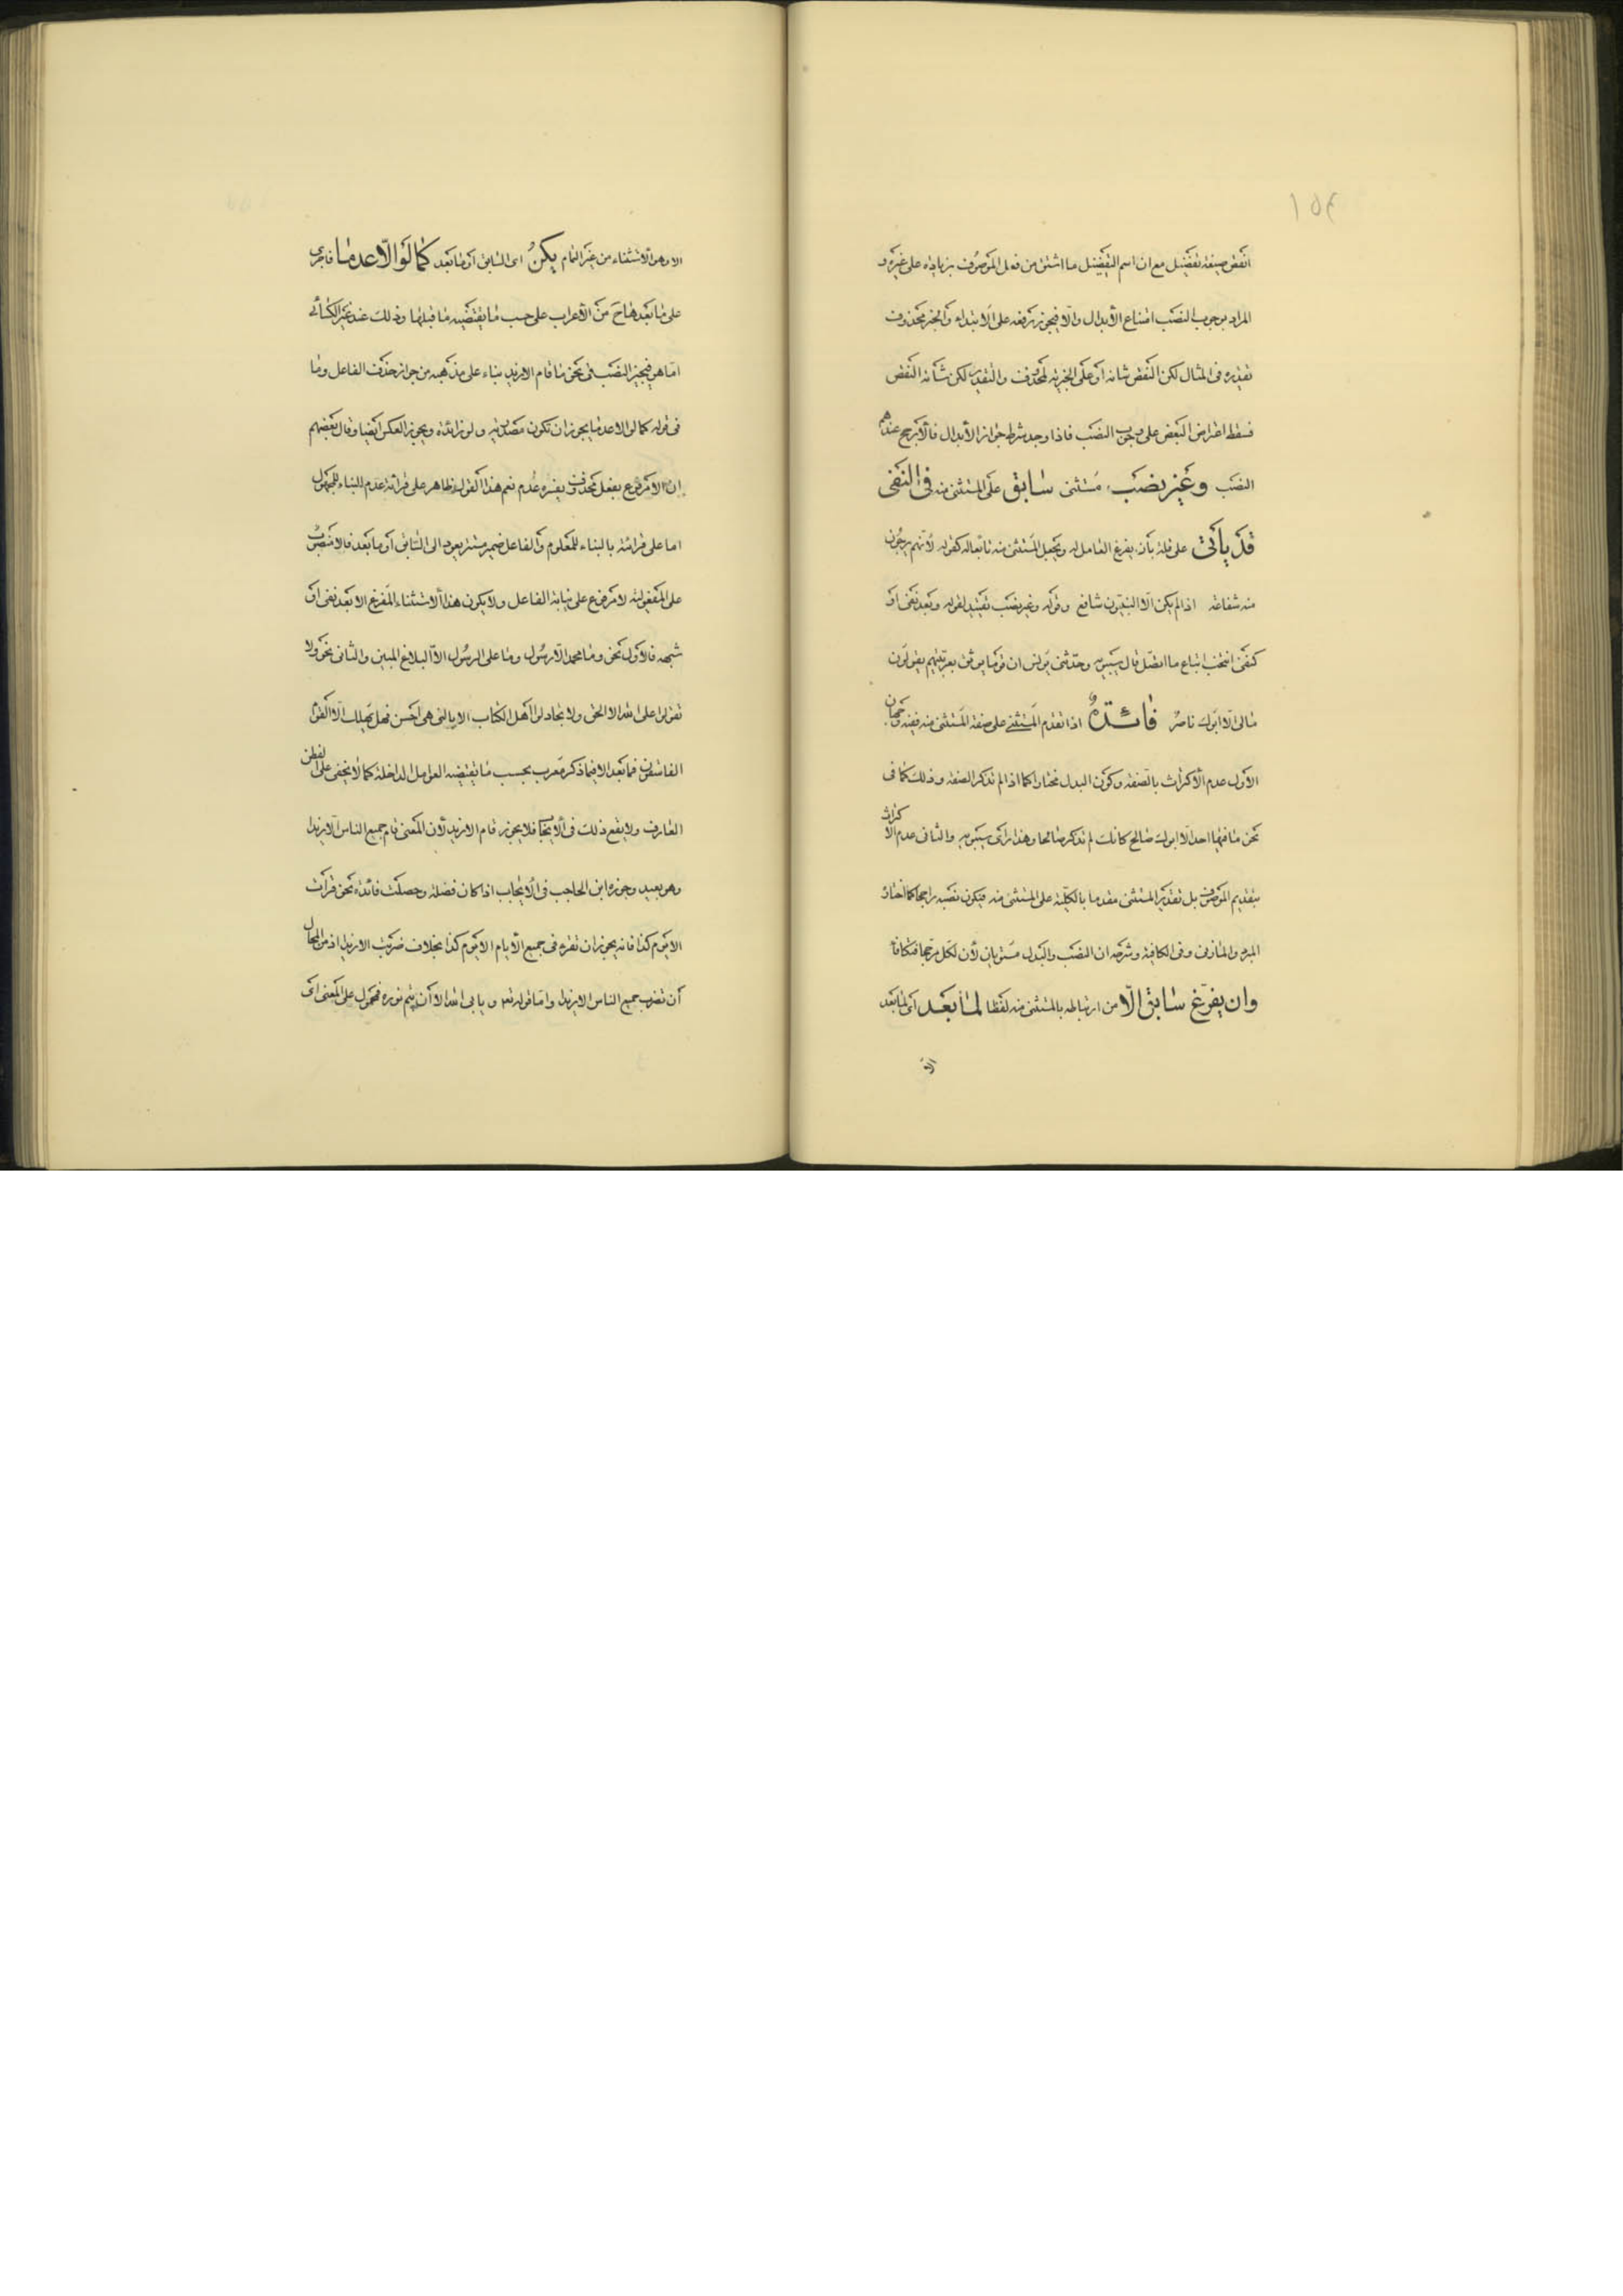 ١٥٤
انقص صيغة تفضيل مع ان اسم التفضيل ما اشتق من فعل الموصوف بزيادة على غيره و
المراد بوجوب النصب امتناع الأبدال والا فيجوز رفعه على الابتداء والخبر محذوف
تقديره فى المثال لكن النقص شانه او على الخبرية لمحذوف والتقدير لكن شأنه النقص
فسقط اعتراض البعض على وجوب النصب فاذا وجد شرط جواز الأبدال فالأرجح عندهم
النصب وغير نصب مستثنى سابق على المستثنى منه فى النفى
قد يأتى على قلة بأن يفرغ العامل له ويجعل المستثنى منه تابعا له كقوله لأنهم يرجون
منه شفاعة اذا لم يكن الا النبيون شافع وقوله وغير نصب تقييد لقوله وبعد نفى او
كنفى انتخب اتباع ما اتصل قال سيبويه وحدثنى يونس ان قوما يوثق بعربيتهم يقولون
مالى الا ابوك ناصر فائدة اذا تقدم المستثنى على صفة المستثنى منه ففيه وجهان
الاول عدم الأكتراث بالصفة وكون البدل مختارا كما اذا لم تذكر الصفة وذلك كما فى
نحو ما فيها احد الا ابوك صالح كانك لم تذكر صالحا وهذا رأى سيبويه والثانى عدم الاكتراث
بتقديم الموصوف بل تقدير المستثنى مقدما بالكلية على المستثنى منه فيكون نصبه راجحا كما اختاره
المبرد والمازنى وفى الكافية وشرحه ان النصب والبدل مستويان لأن لكل مرجحا فتكافأ
وان يفرغ سابق الا من ارتباطه بالمستثنى منه لفظا لما بعد اى لما بعد
الا
الا وهو الاستثناء من غير التمام يكن اى السابق او ما بعد كما لو الا عدما فاجرى
على ما بعدها ح من الأعراب على حسب ما يقتضيه ما قبلها وذلك عند غير الكسائى
اما هو فيجيز النصب فى نحو ما قام الا زيد بناء على مذهبه من جواز حذف الفاعل وما
فى قوله كما لو الا عدما يجوز ان تكون مصدرية ولو زائدة ويجوز العكس ايضا وقال بعضهم
ان الا مرفوع بفعل محذوف يفسره عدم نعم هذا القول ظاهر على قرائة عدم للبناء للمجهول
اما على قرائته بالبناء للمعلوم والفاعل ضمير مستتر يعود الى السابق او ما بعد فالا منصوب
على المفعولية لا مرفوع على نيابة الفاعل ولا يكون هذا الاستثناء المفرغ الا بعد نفى او
شبهه فالأول نحو وما محمد الا رسول وما على الرسول الا البلاغ المبين والثانى نحو ولا
تقولوا على الله الا الحق ولا تجادلوا اهل الكتاب الا بالتى هى احسن فهل يهلك الا القوم
الفاسقون فما بعد الا فيما ذكر معرب بحسب ما يقتضيه العوامل الداخلة كما لا يخفى على الفطن
العارف ولا يقع ذلك فى الايجاب فلا يجوز قام الا زيد لأن المعنى قام جميع الناس الا زيدا
وهو بعيد وجوزه ابن الحاجب فى الايجاب اذا كان فضلة وحصلت فائدة نحو قرأت
الا يوم كذا فانه يجوز ان تقرء فى جميع الأيام الا يوم كذا بخلاف ضربت الا زيدا اذ من المحال
أن تضرب جميع الناس الا زيدا واما قوله تعا ويابى الله الا أن يتم نوره فمحمول على المعنى اى